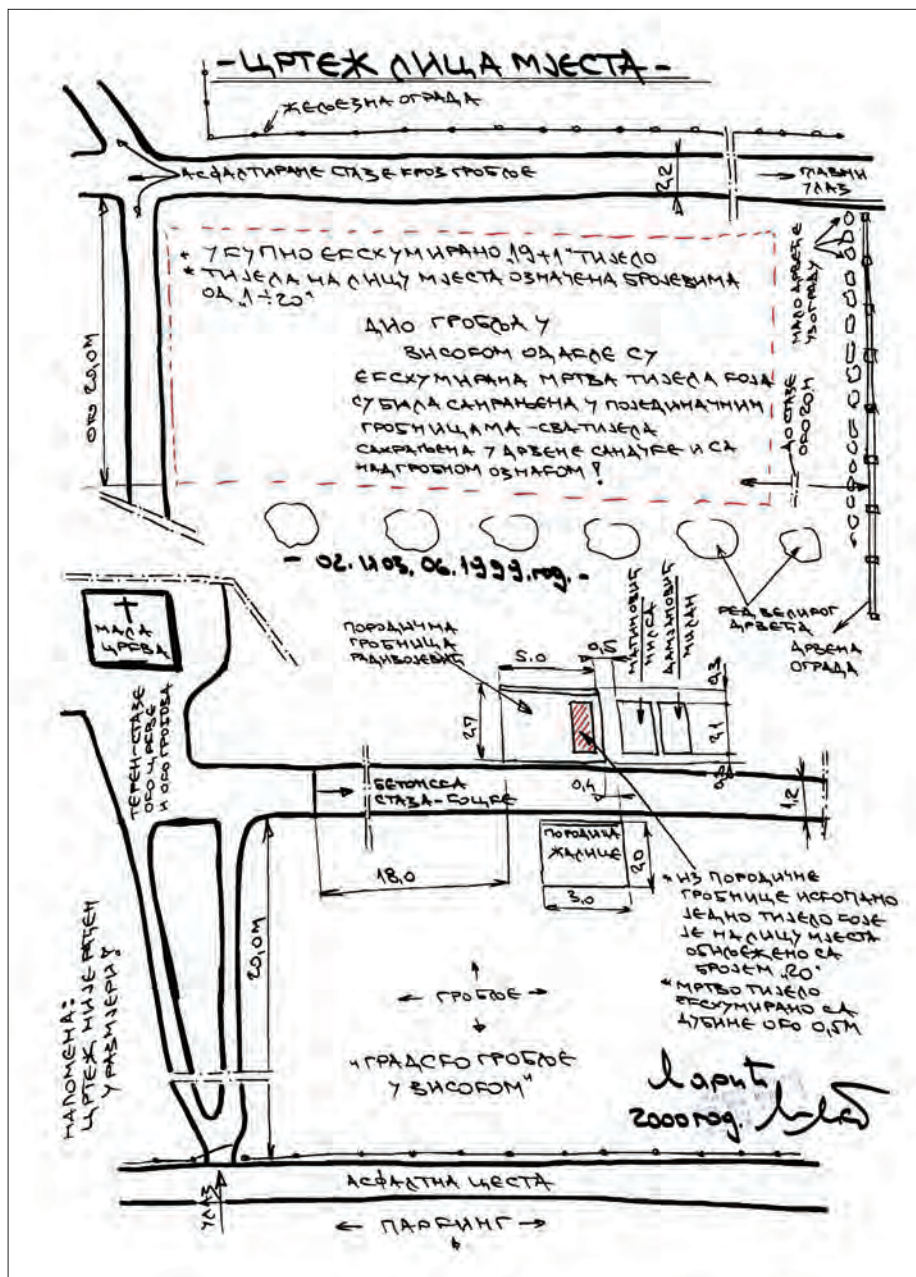 -ЦРТЕЖ ЛИЦА МЈЕСТА-
ЖЕЉЕЗНА ОГРАДА
АСФАЛТИРАНЕ СТАЗЕ КРОЗ ГРОБЉЕ
2,2
ГЛАВНИ
УЛАЗ
* УКУПНО ЕКСХУМИРАНО „19+1“ ТИЈЕЛО
* ТИЈЕЛА НА ЛИЦУ МЈЕСТА ОЗНАЧЕНА БРОЈЕВИМА
ОД „1÷20“
ДИО ГРОБЉА У
ВИСОКОМ ОДАКЛЕ СУ
ЕКСХУМИРАНА МРТВА ТИЈЕЛА КОЈА
СУ БИЛА САХРАЊЕНА У ПОЈЕДИНАЧНИМ
ГРОБНИЦАМА -СВА ТИЈЕЛА
САХРАЊЕНА У ДРВЕНЕ САНДУКЕ И СА
НАДГРОБНОМ ОЗНАКОМ!
ОКО 20,0М
МАЛО ДРВЕЋЕ
УЗ ОГРАДУ
ДО СТАЗЕ
ОКО 20,М
- 02. И 03. 06. 1999. год. -
РЕД ВЕЛИКОГ
ДРВЕТА
ДРВЕНА
ОГРАДА
МАЛА
ЦРКВА
ТЕРЕН-СТАЗЕ
ОКО ЦРКВЕ
И ОКО ГРОБОВА
ПОРОДИЧНА
ГРОБНИЦА
РАДИВОЈЕВИЋ
5.0
0,5
ДАМЈАНОВИЋ
МИЛАН
0,3
2,7
2,1
БЕТОНСКА
СТАЗА-КОЦКЕ
0,4
1,2
18,0
ПОРОДИЦА
ЖАЛИЦЕ
2,0
3,0
20,0М
* ИЗ ПОРОДИЧНЕ
ГРОБНИЦЕ ИСКОПАНО
ЈЕДНО ТИЈЕЛО КОЈЕ
ЈЕ НА ЛИЦУ МЈЕСТА
ОБИЉЕЖЕНО СА
БРОЈЕМ „20“
* МРТВО ТИЈЕЛО
ЕКСХУМИРАНО СА
ДУБИНЕ ОКО 0,5М
ГРОБЉЕ
"ГРАДСКО ГРОБЉЕ
У ВИСОКОМ"
НАПОМЕНА:
ЦРТЕЖ НИЈЕ РАЂЕН
У РАЗМЈЕРИ!
Ларић
2000 год.
УЛАЗ
АСФАЛТНА ЦЕСТА
ПАРКИНГ